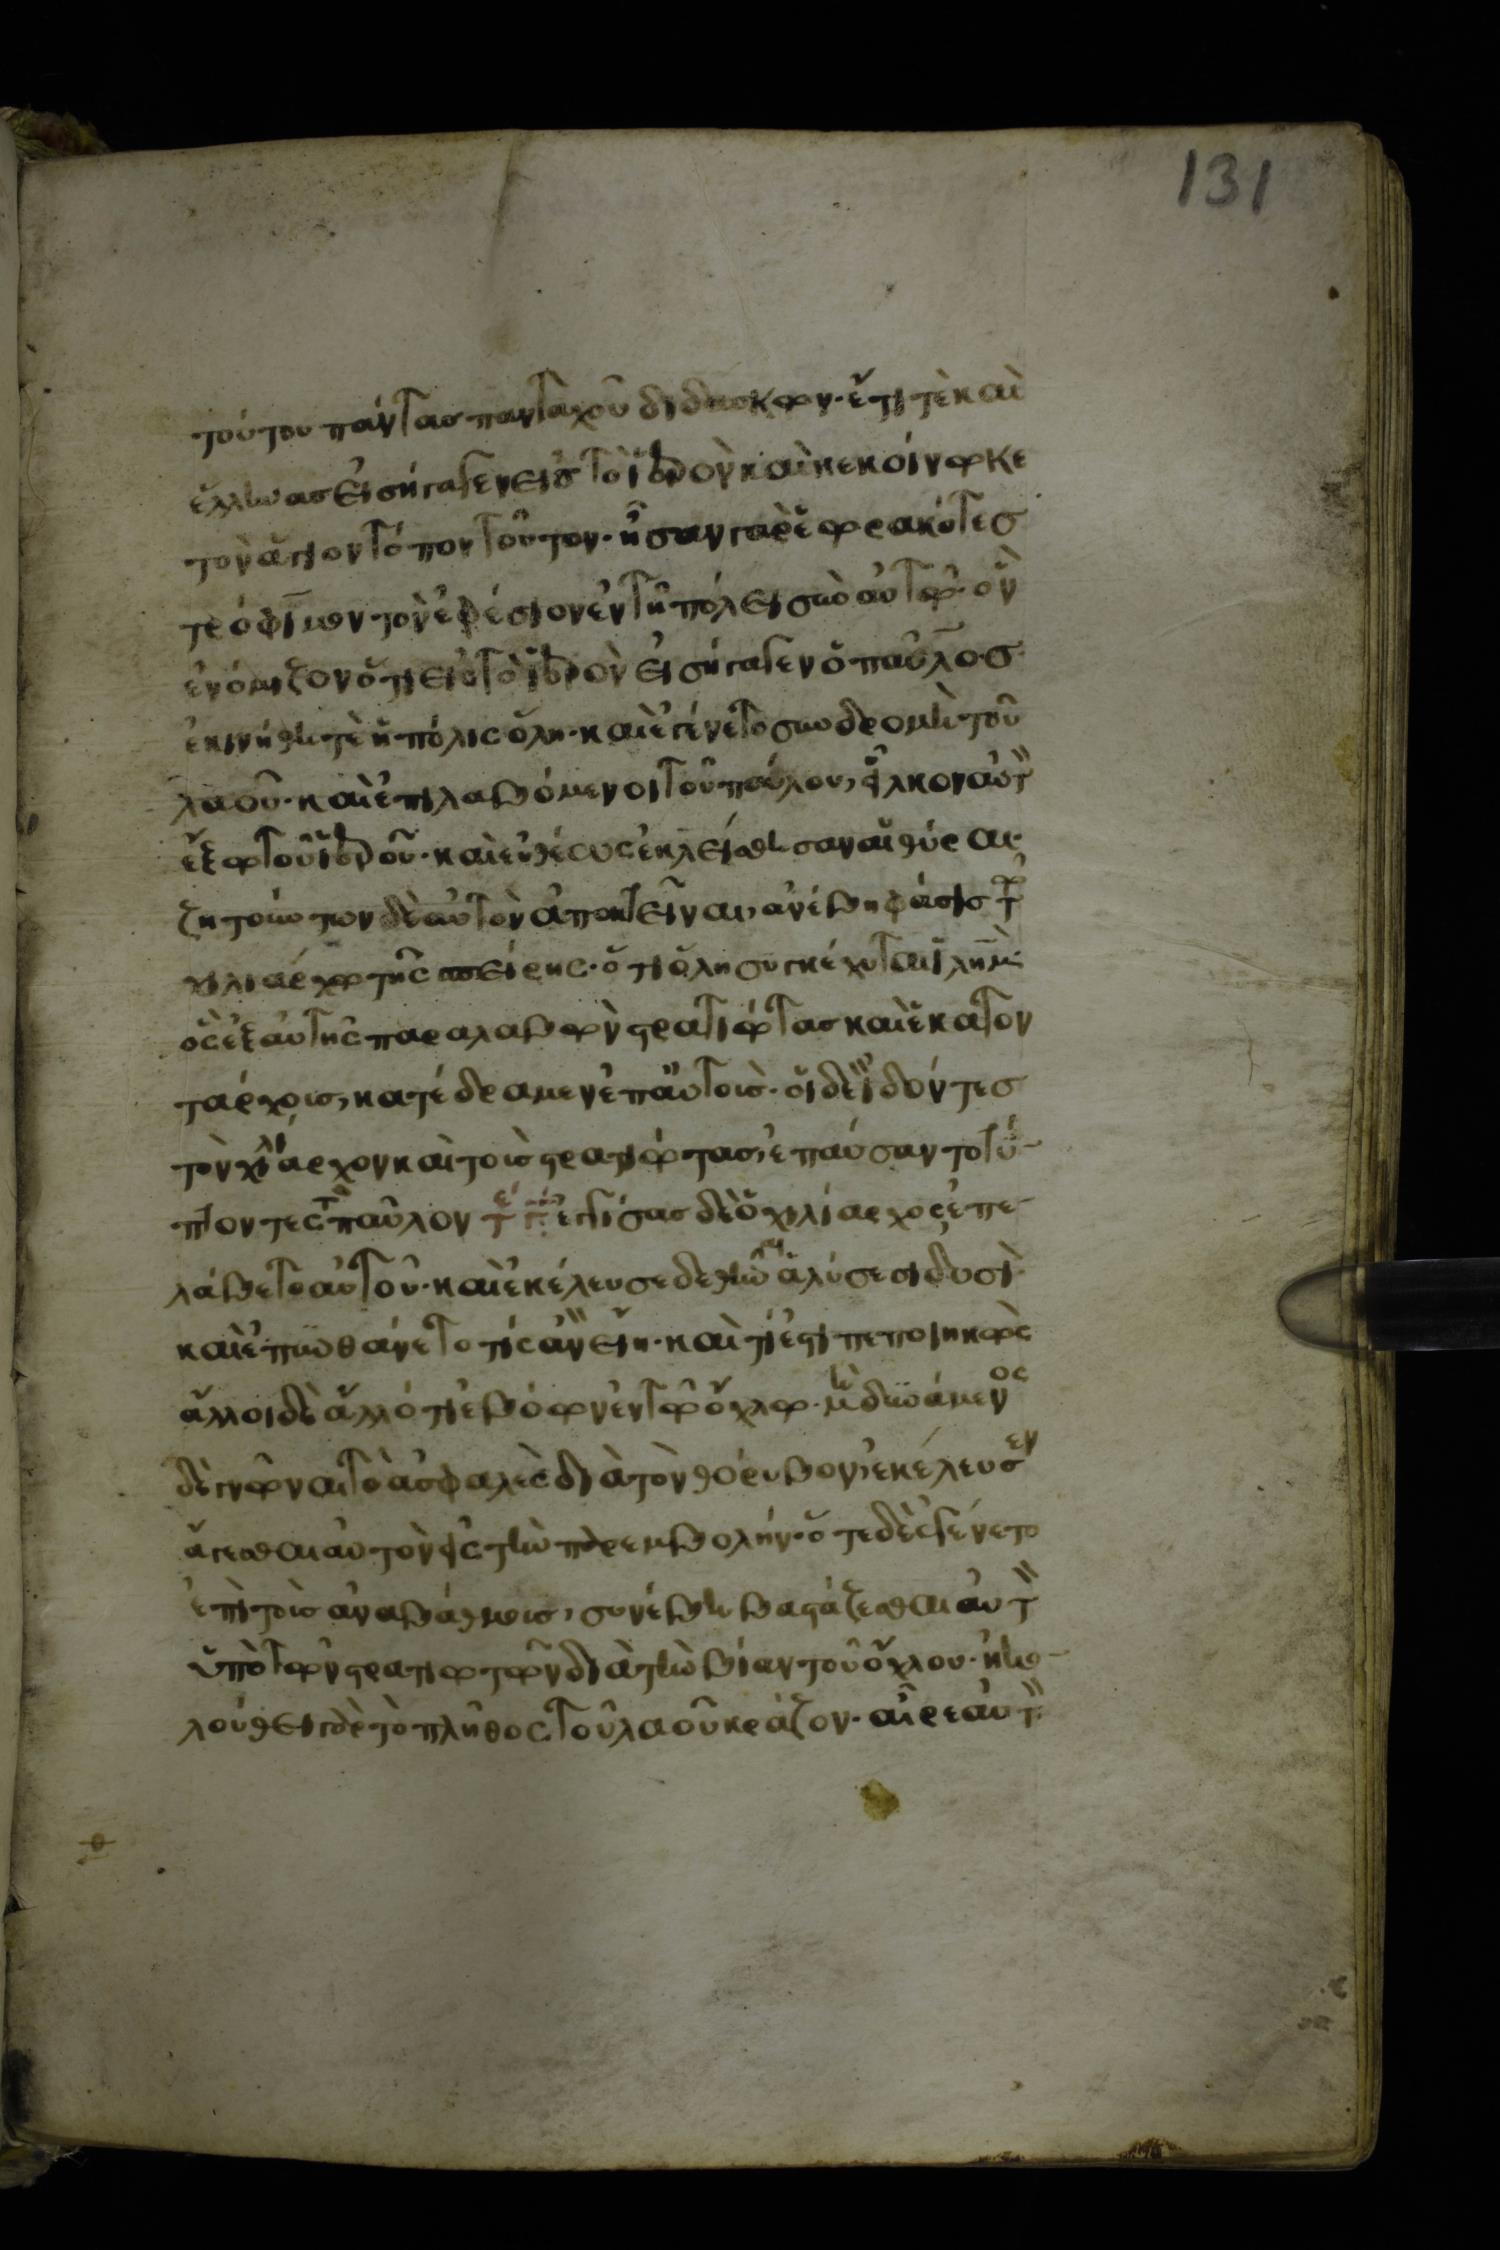 131
τούτου πάντας πανταχοῦ διδάσκων· ἔτι τὲ καὶ
ἕλληνας εἰσήγαγεν εἰς τὸ ἱερὸν καὶ κεκοίνωκε
τὸν ἅγιον τόπον τοῦτον· ἦσαν γὰρ ἑωρακότες
τρόφιμον τὸν ἐφέσιον ἐν τῇ πόλει σὺν αὐτῷ· ὃν
ἐνόμιζον ὅτι εἰς τὸ ἱερὸν εἰσήγαγεν ὁ παῦλος·
ἐκινήθη τὲ ἡ πόλις ὅλη· καὶ ἐγένετο συνδρομὴ τοῦ
λαοῦ· καὶ ἐπιλαβόμενοι τοῦ παύλου, εἷλκον αὐτ
ἔξω τοῦ ἱεροῦ· καὶ εὐθέως ἐκλείσθησαν αἱ θύραι·
ζητούντων δὲ αὐτὸν ἀποκτεῖναι, ἀνέβη φάσις τῷ
χιλιάρχῳ τῆς σπείρης· ὅτι ὅλη συγκέχυται ἱλημ·
ὃς ἐξαυτῆς παραλαβὼν στρατιώτας καὶ ἑκατον
τάρχους, κατέδραμεν ἐπ αὐτούς· οἱ δὲ ἰδόντες
τὸν χιλίαρχον καὶ τοὺς στρατιώτας, ἐπαύσαντο τύ-
πτοντες τὸν παῦλον ἐγγίσας δὲ ὁ χιλίαρχος ἐπε-
λάβετο αὐτοῦ· καὶ ἐκέλευσε δεθῆναι ἁλύσεσι δυσὶ·
καὶ ἐπυνθάνετο τίς ἂν εἴη· καὶ τί ἐστι πεποιηκὼς
ἄλλοι δὲ ἄλλό τι ἐβόων ἐν τῷ ὄχλῳ· μὴ δυνάμενος
δὲ γνῶναι τὸ ἀσφαλὲς διὰ τὸν θόρυβον, ἐκέλευσεν
ἄγεσθαι αὐτὸν εἰς τὴν παρεμβολήν· ὅτε δὲ ἐγένετο
ἐπὶ τοὺς ἀναβάθμους, συνέβη βαστάζεσθαι αὐτ
ὑπὸ τῶν στρατιωτῶν διὰ τὴν βίαν τοῦ ὄχλου· ἠκο-
λούθει γὰρ τὸ πλῆθος τοῦ λαοῦ κράζον· αἶρε αὐτ